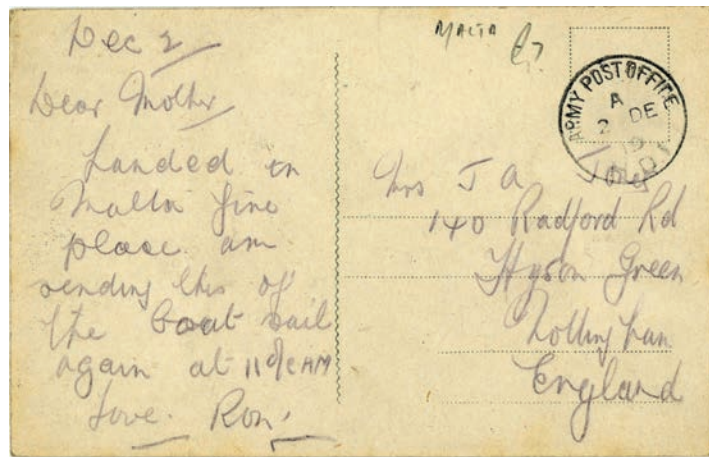 Dec 2
Dear Mother
Landed in
Malta fine
place am
sending this of
the boat sail
again at 11 o/c AM
Love. Ron.
MALTA
ARMY POST OFFICE
A
2 DE
19
Mrs J A
140 Radford Rd
Hyson Green
Nottingham
England